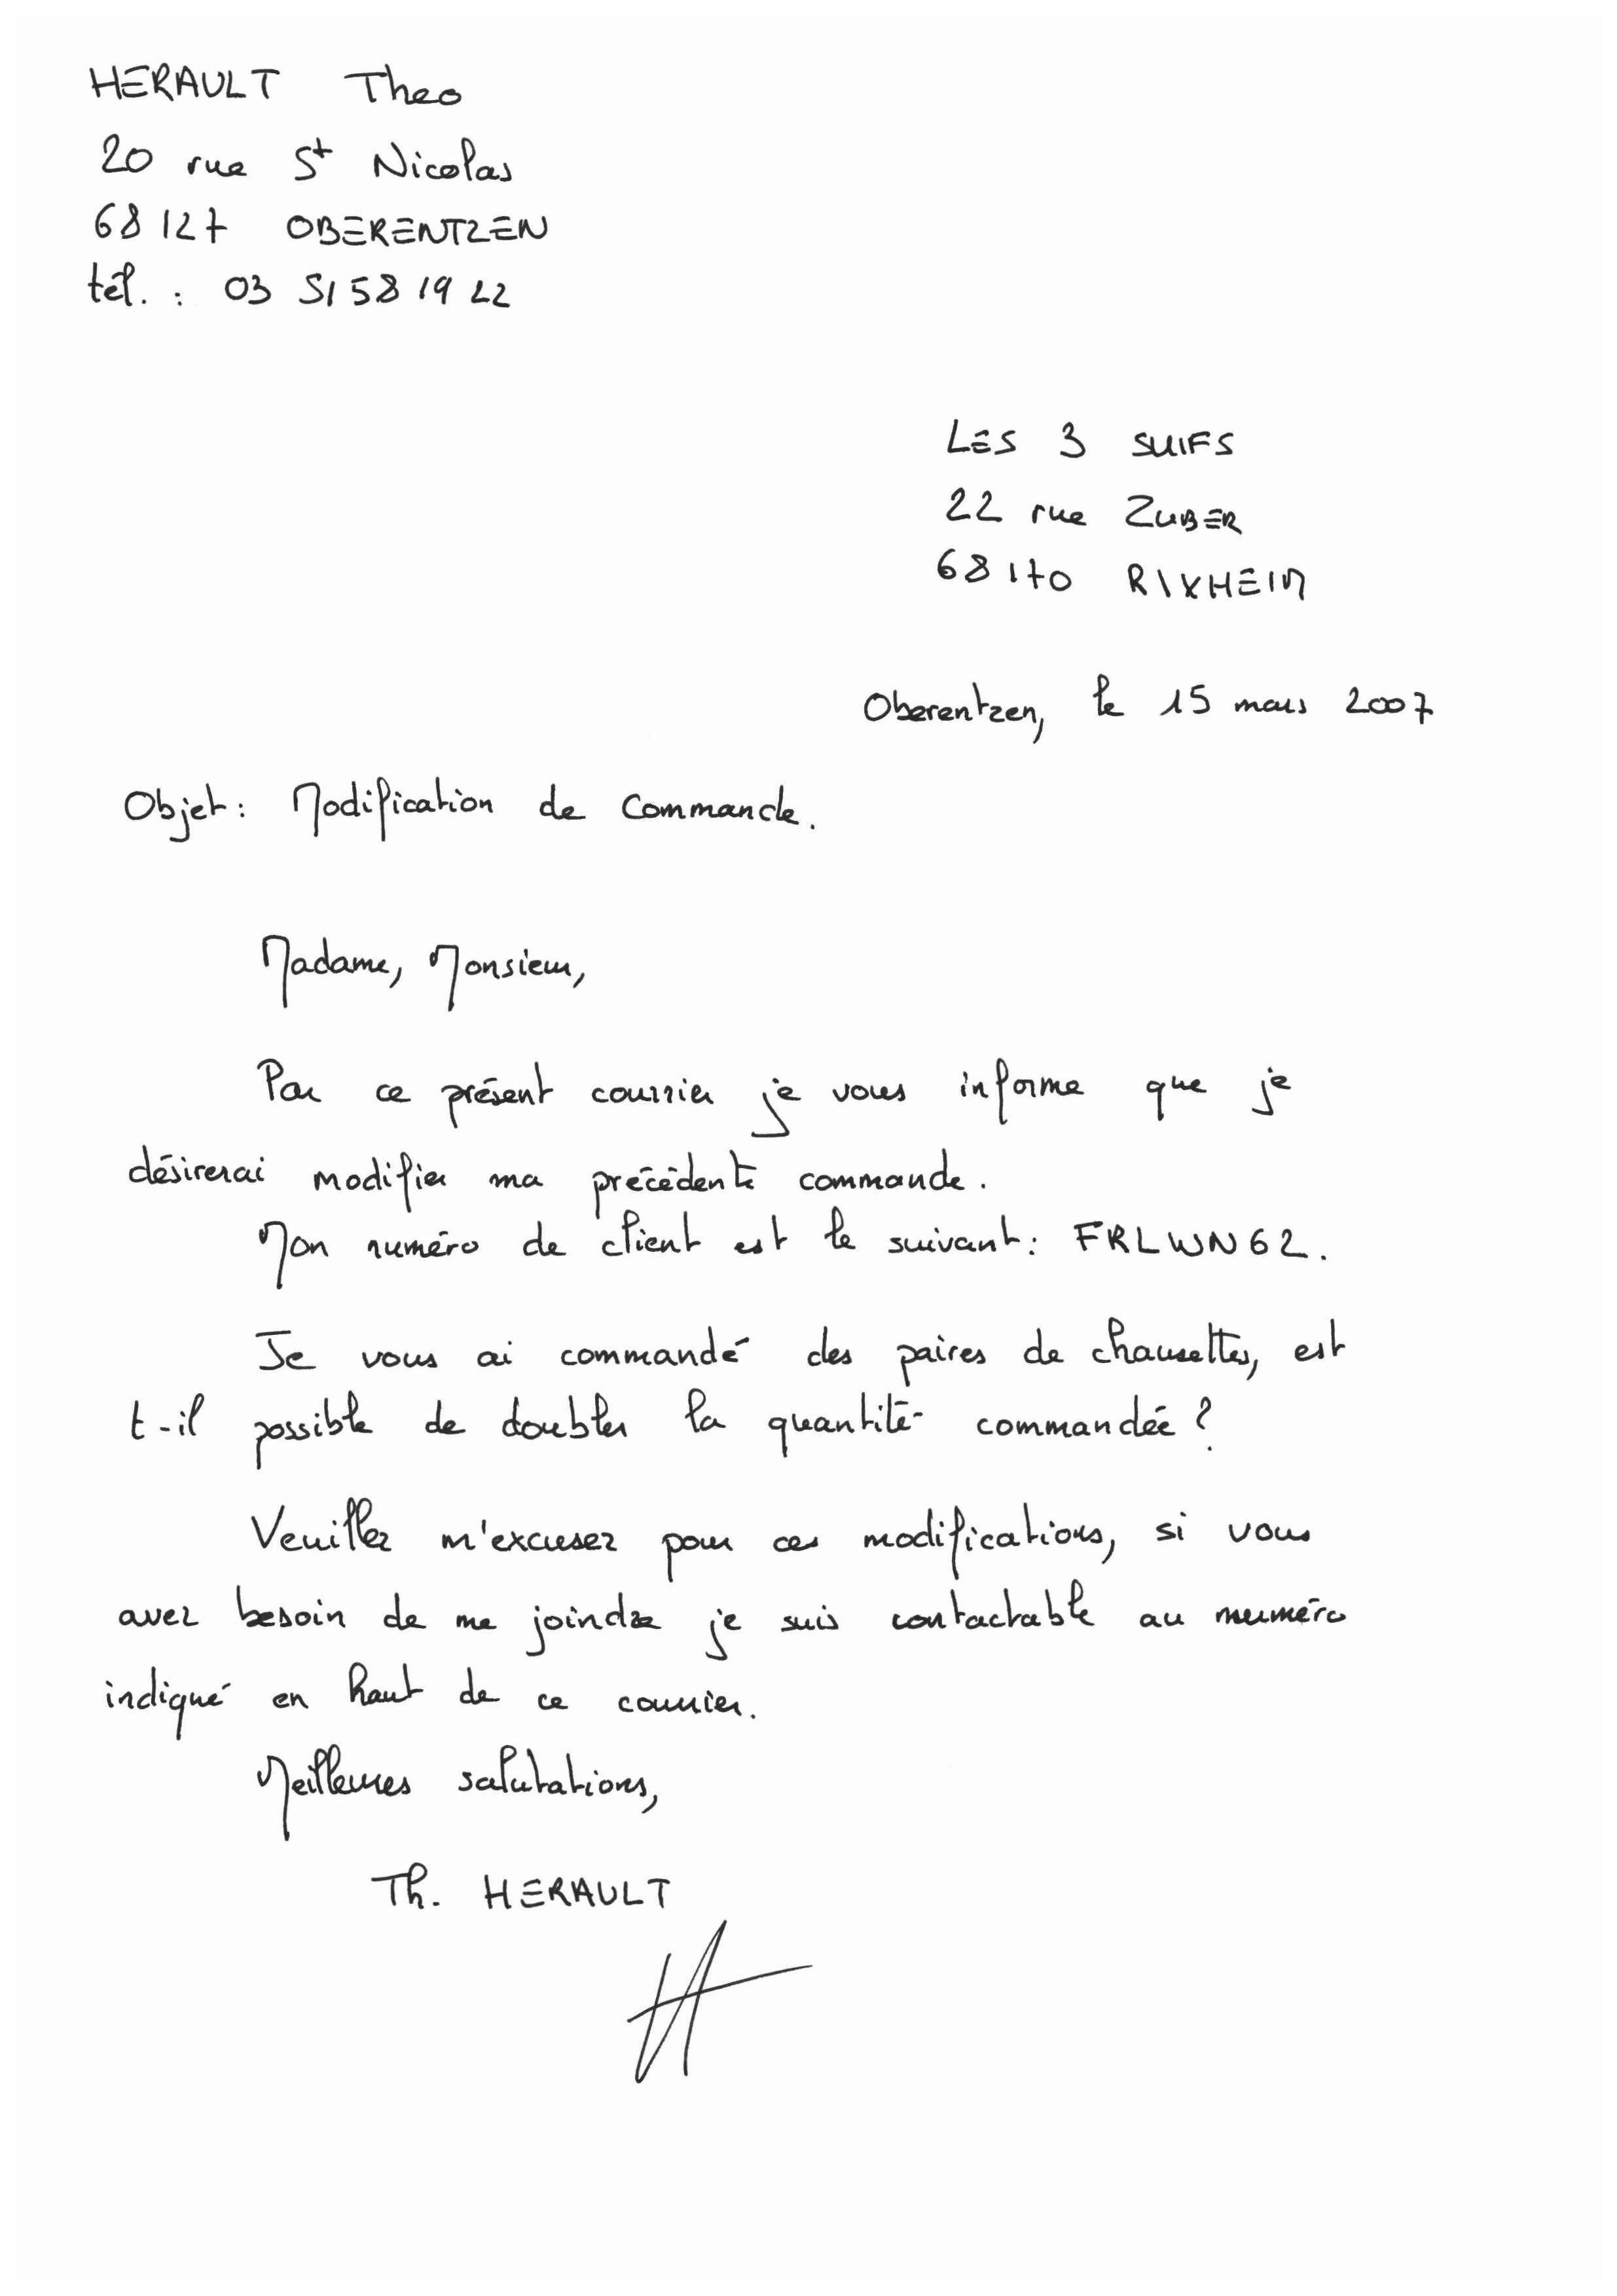 HERAULT Theo
20 rue St Nicolas
68127 OBERENTZEN
tél. : 03 51 58 19 22
LES 3 SUIFS
22 rue ZUBER
68170 RIXHEIM
Oberentzen, le 15 mars 2007
Objet : Modification de Commande.
Madame, Monsieur,
Par ce présent courrier je vous informe que je
désirerai modifier ma précédente commande.
Mon numéro de client est le suivant : FRLWN62.
Je vous ai commandé des paires de chaussettes, est
t-il possible de doubler la quantité commandée ?
Veuillez m'excusez pour ces modifications, si vous
avez besoin de me joindre je suis contactable au numéro
indiqué en haut de ce courrier.
Meilleures salutations,
Th. HERAULT